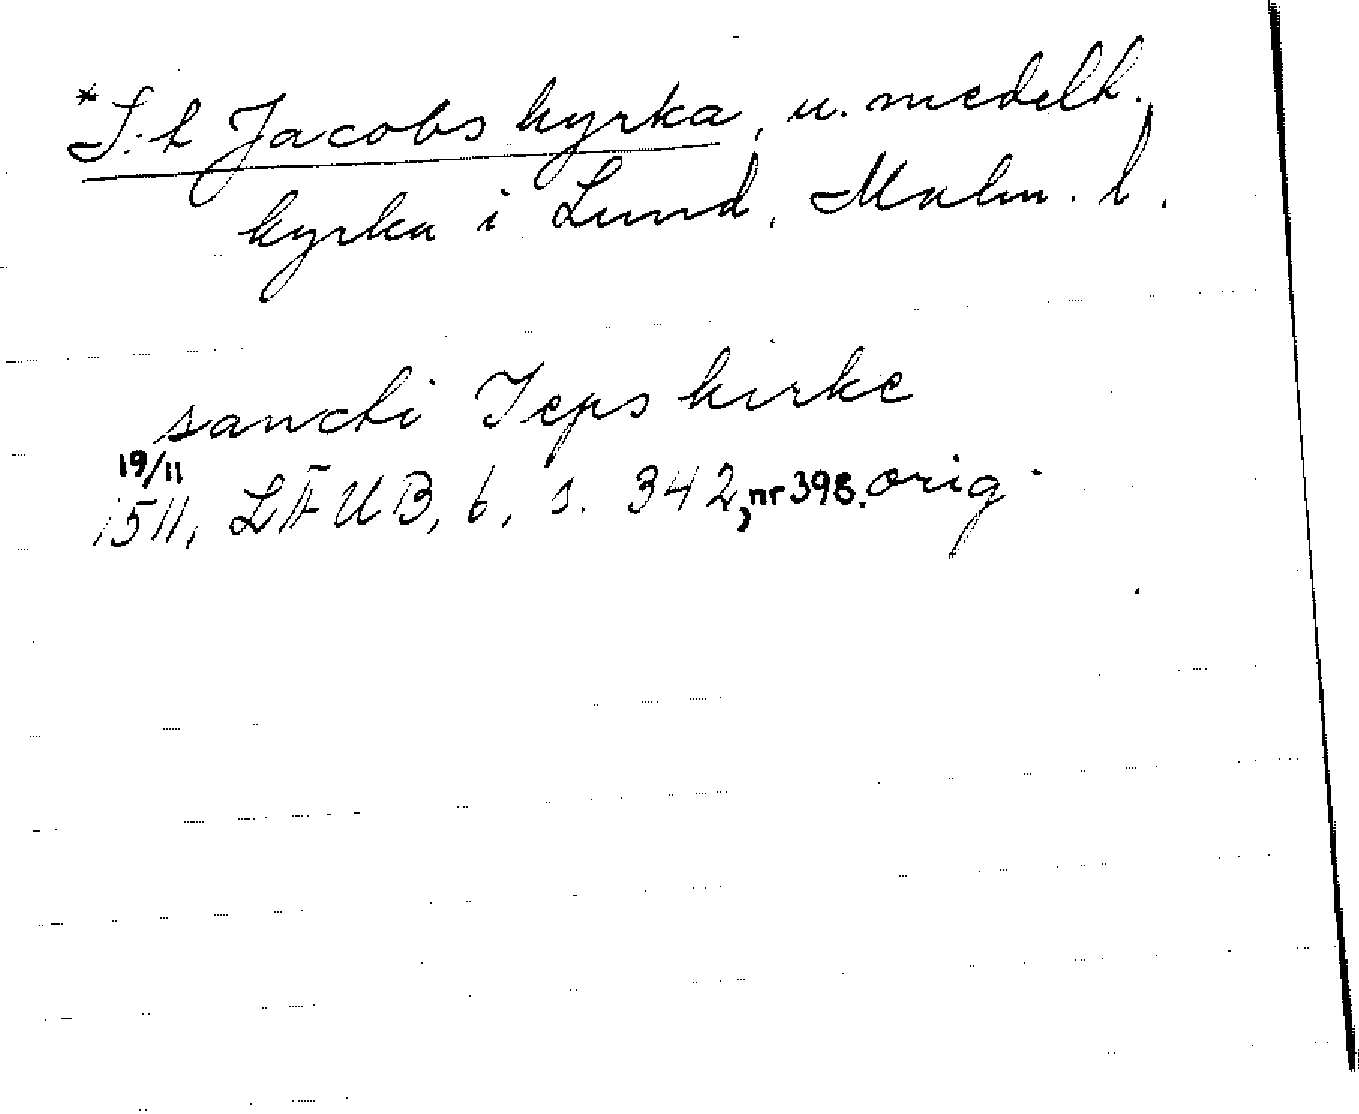 *S:t Jacobs kyrka, u. medelt.
kyrka i Lund, Malm. l.
sancti Jeps kirke
19/11
1511, LÄUB, 6, s. 342, nr 398. orig.